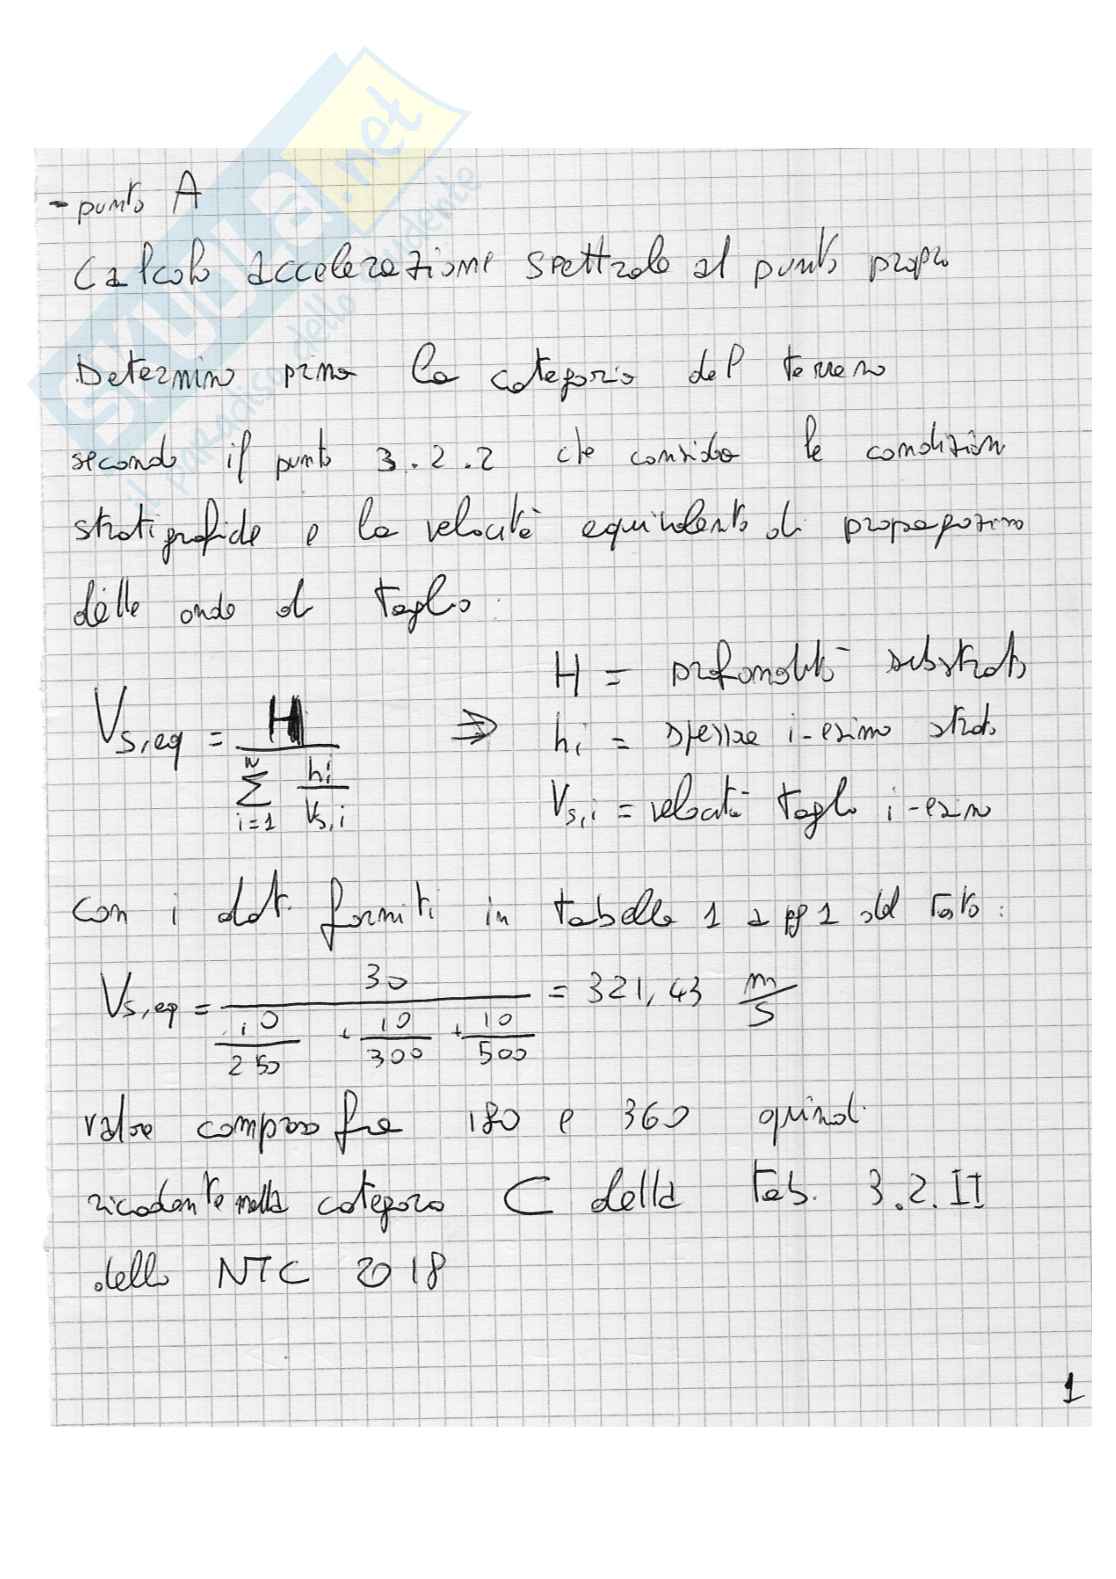 - punto A
Calcolo accelerazione spettrale al punto propro
Determino prima la categoria del terreno
secondo il punto 3.2.2 che considera le condizioni
stratigrafiche e la velocità equivalente di propagazione
delle onde di taglio.
H = profondità substrato
Vs,eq = H / Σ i=1 N hi / Vs,i ⇒ hi = spessore i-esimo strato
Vs,i = velocità taglio i-esimo
Con i dati forniti in tabella 1 a pg 1 del testo:
Vs,eq = 30 / (10/250 + 10/300 + 10/500) = 321,43 m/s
valore compreso fra 180 e 360 quindi
ricadente nella categoria C della Tab. 3.2.II
delle NTC 2018
1
SKUOLA.net
il paradiso dello studente